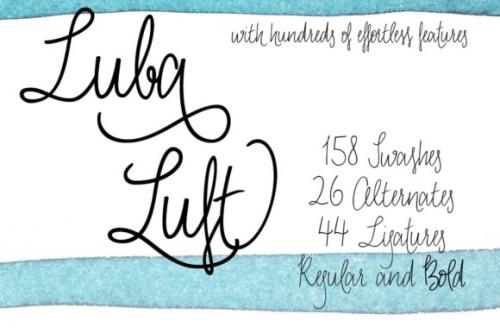 with hundreds of effortless features
Luba
Luft
158 Swashes
26 Alternates
44 Ligatures
Regular and Bold